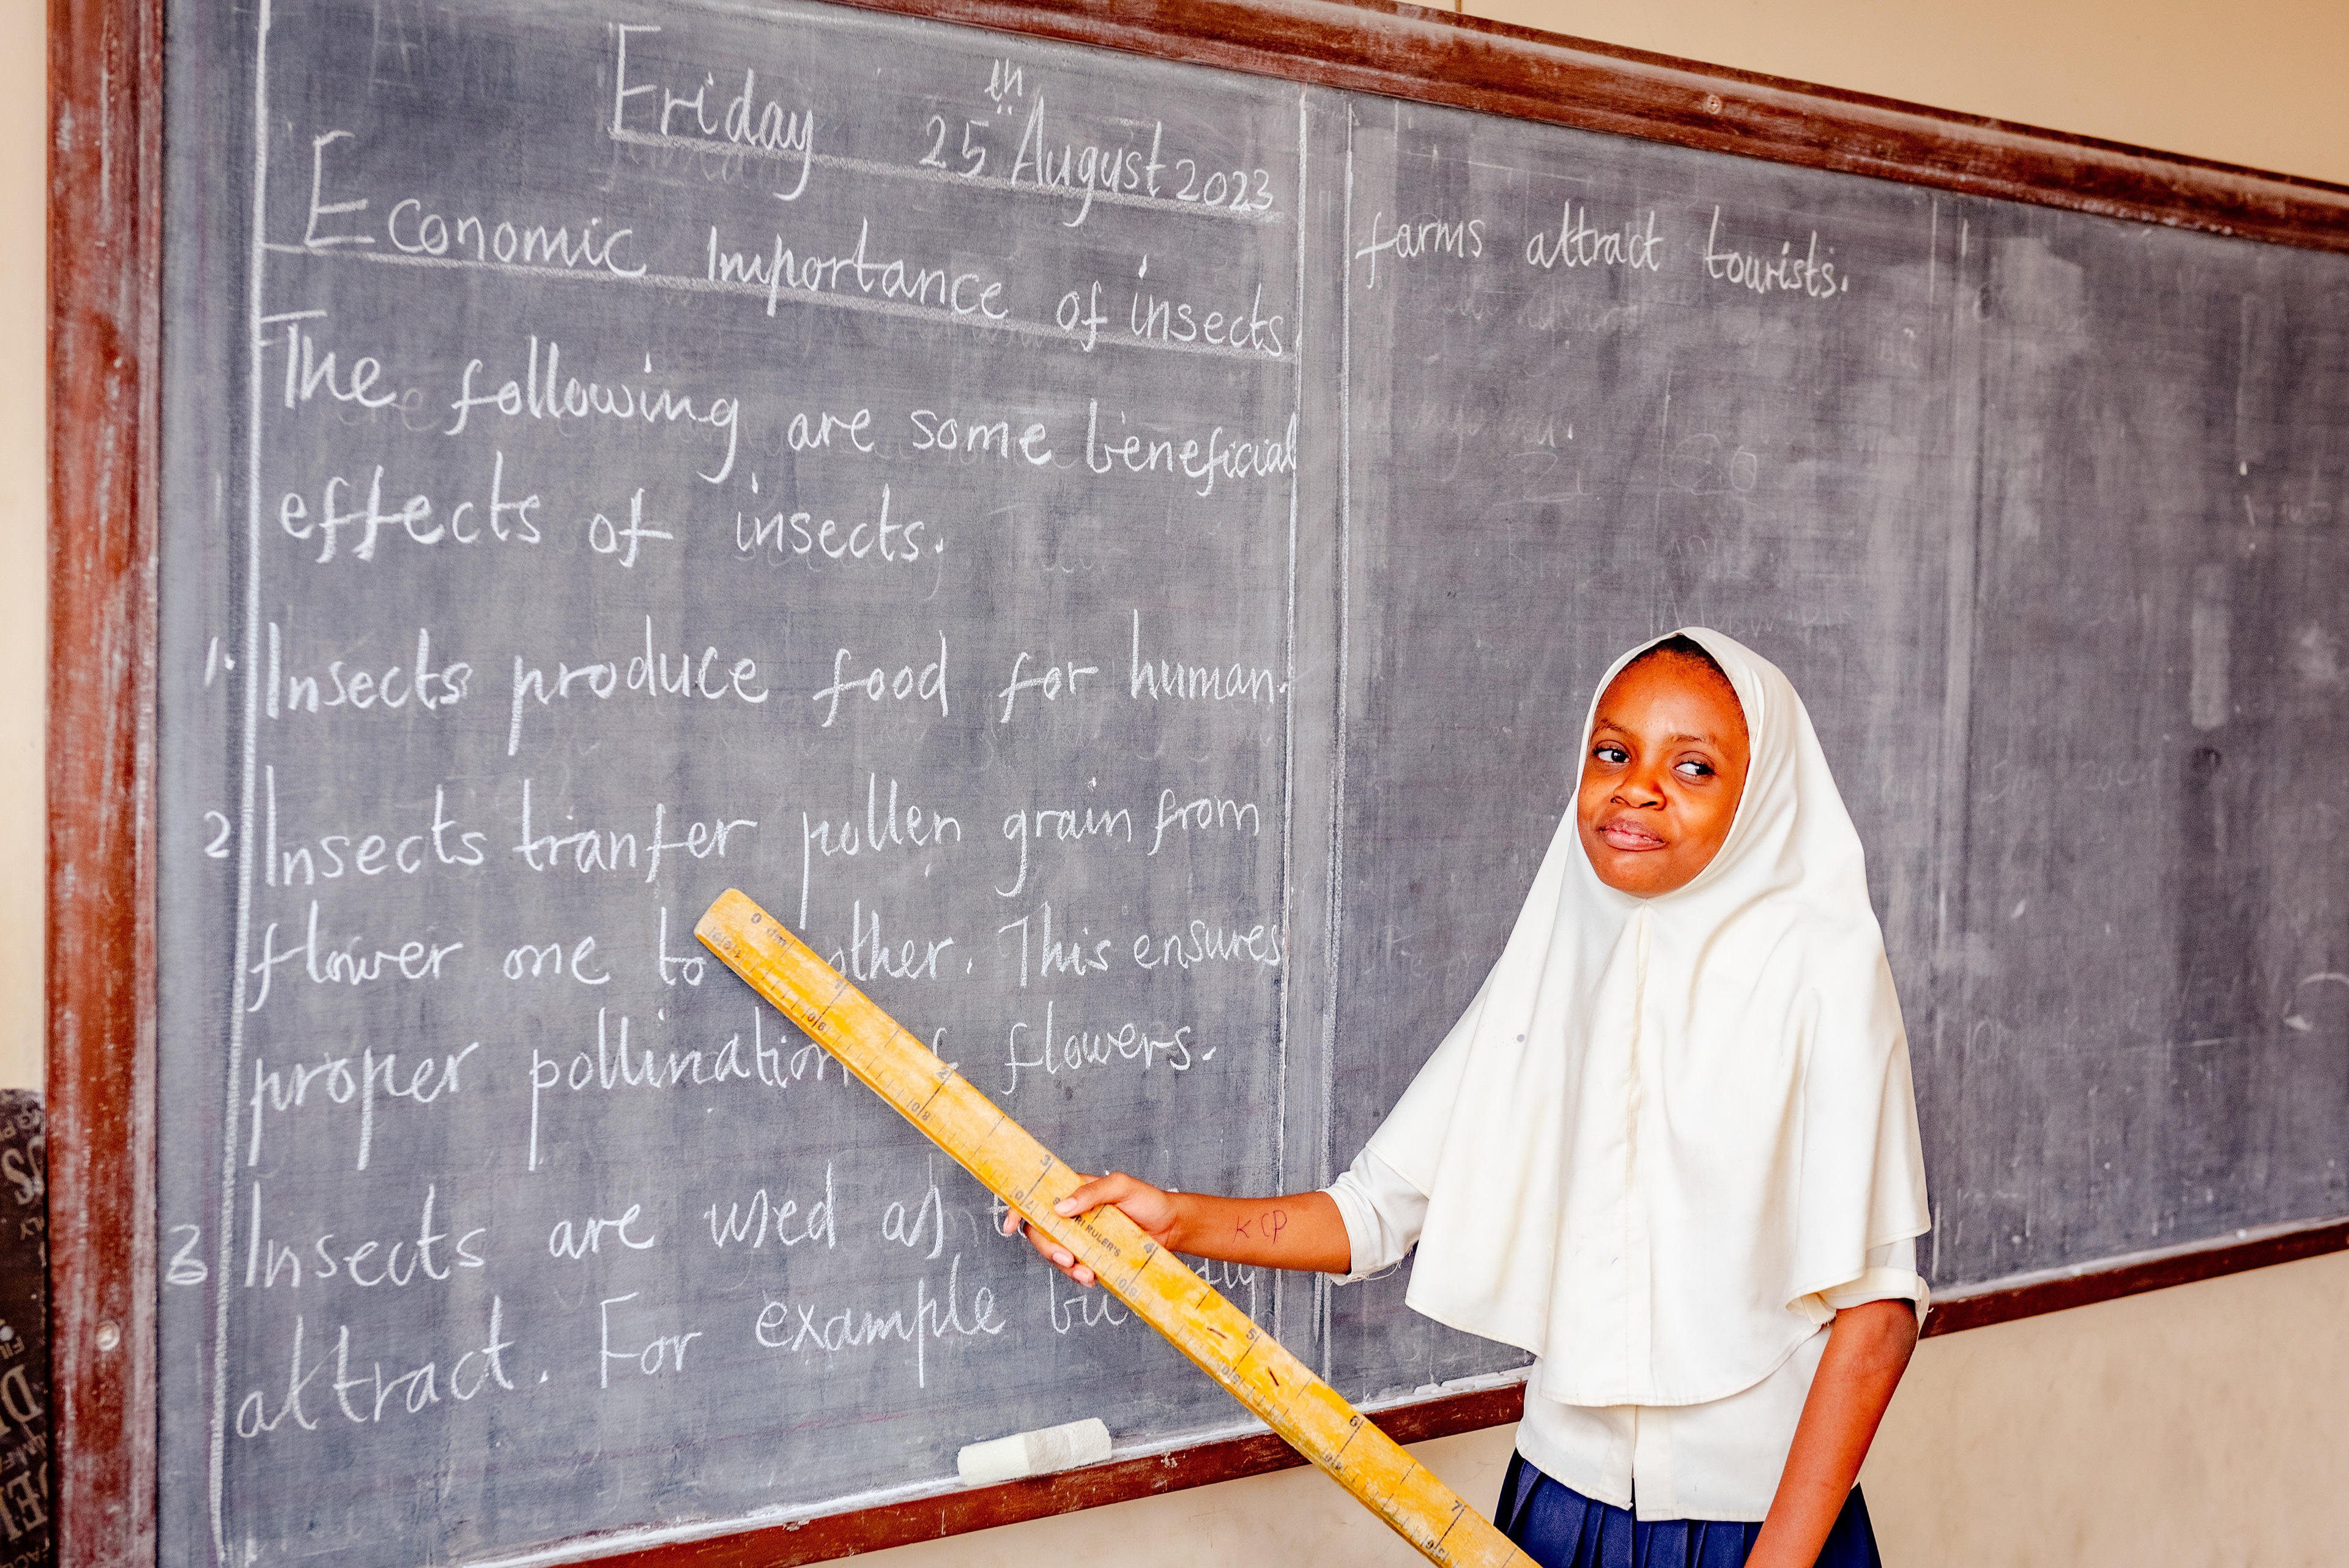 Friday 25th August 2023
Economic Importance of insects
The following are some beneficial
effects of insects.
1. Insects produce food for human.
2 Insects tranfer pollen grain from
flower one to other. This ensures
proper pollination flowers.
3 Insects are used as
attract. For example
farms attract tourists.
KCP
0 dm
1
2
3
RULER'S
4
5
6
7